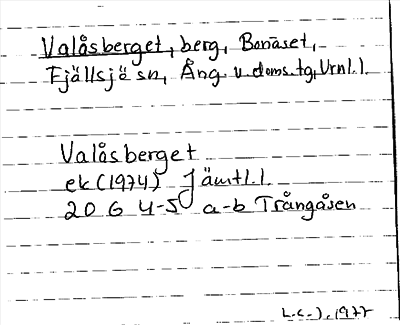 Valåsberget, berg, Bonäset,
Fjällsjö sn, Ång. v. doms. tg, Vrnl. l.
Valåsberget
ek (1974) Jämtl. l.
20 G 4-5 a-b Trångåsen
L.C.J. 1977